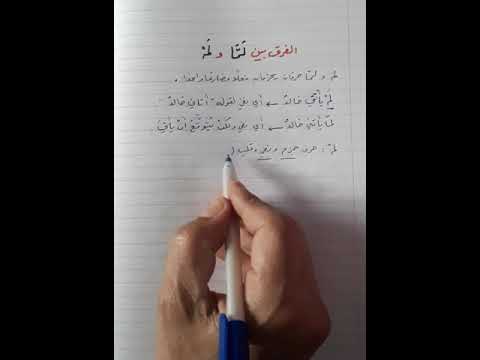 الفرق بين لَمَّا و لَمْ
لم و لمّا حرفان يجزمان فعلًا مضارعًا واحدا.
لَمْ يأتي خالدٌ ← أي نفي لقوله أتاني خالدٌ
لمّا يأتني خالدٌ ← أي نفي ولكن يُتوقّع أنْ يأتيَ
لمْ: حرف جزم و نفي وقلب (